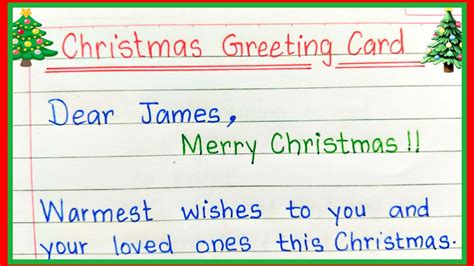 Christmas Greeting Card
Dear James,
Merry Christmas !!
Warmest wishes to you and
your loved ones this Christmas.